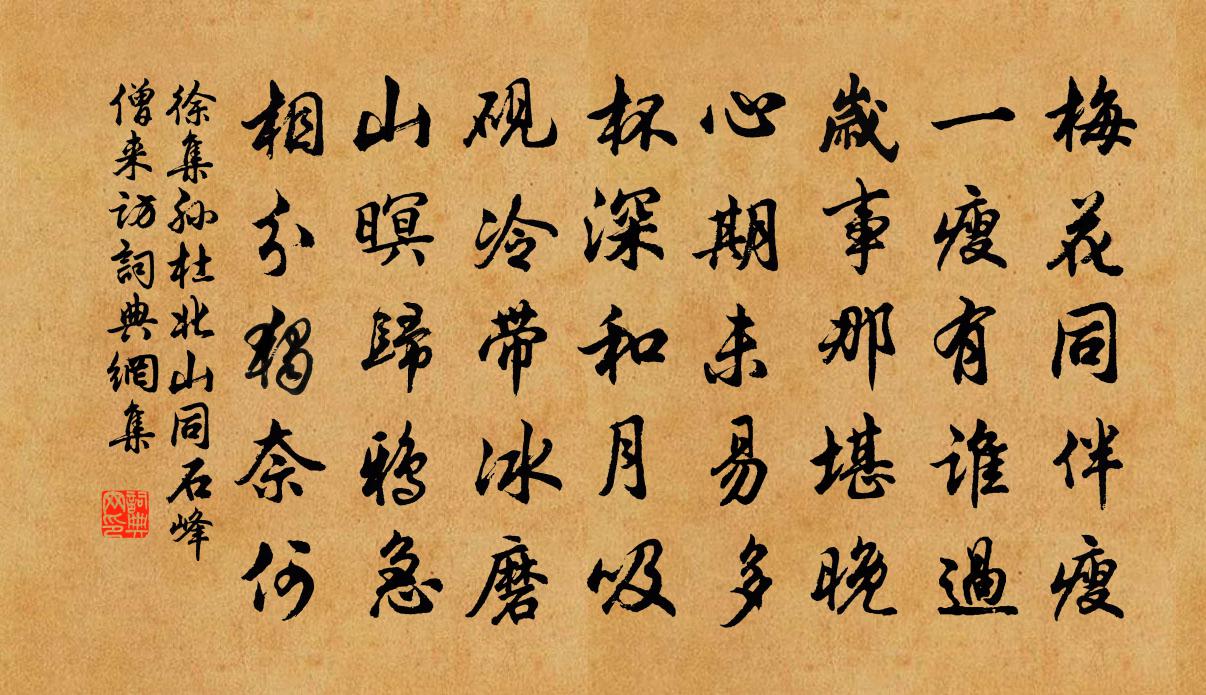 梅花同伴瘦
一瘦有誰過
歲事那堪晚
心期未易多
杯深和月吸
硯冷带冰磨
山暝歸鴉急
相分獨奈何
徐集孫杜北山同石峰
僧来訪詞典網集
詞典网印